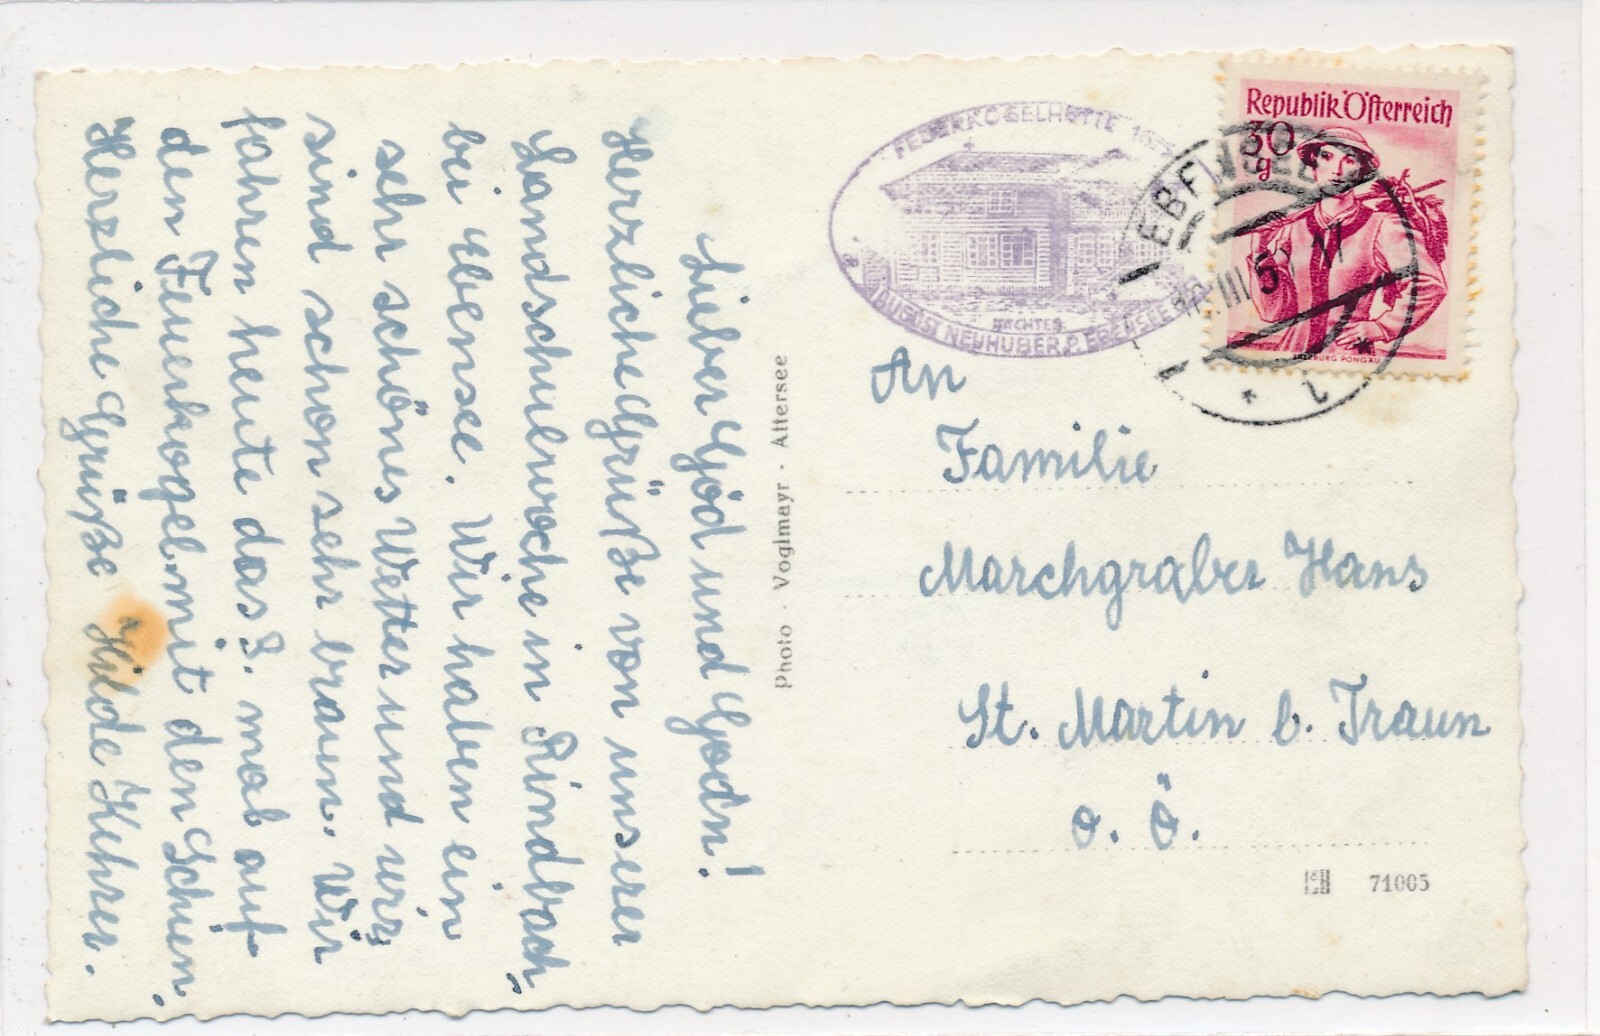 Lieber Göd und Godn!
Herzliche Grüße von unserer
Landschulwoche in Rindbach
bei Ebensee. Wir haben ein
sehr schönes Wetter und wir
sind schon sehr braun. Wir
fahren heute das 3. mal auf
den Feuerkogel mit den Schiern.
Herzliche Grüße Hilde Kehrer.
Photo · Voglmayr · Attersee
AUGUST NEUHUBER, P. EBENSEE
Republik Österreich
30
g
SALZBURG PONGAU
EBENSEE
An
Familie
Marchgraber Hans
St. Martin b. Traun
o. ö.
71005